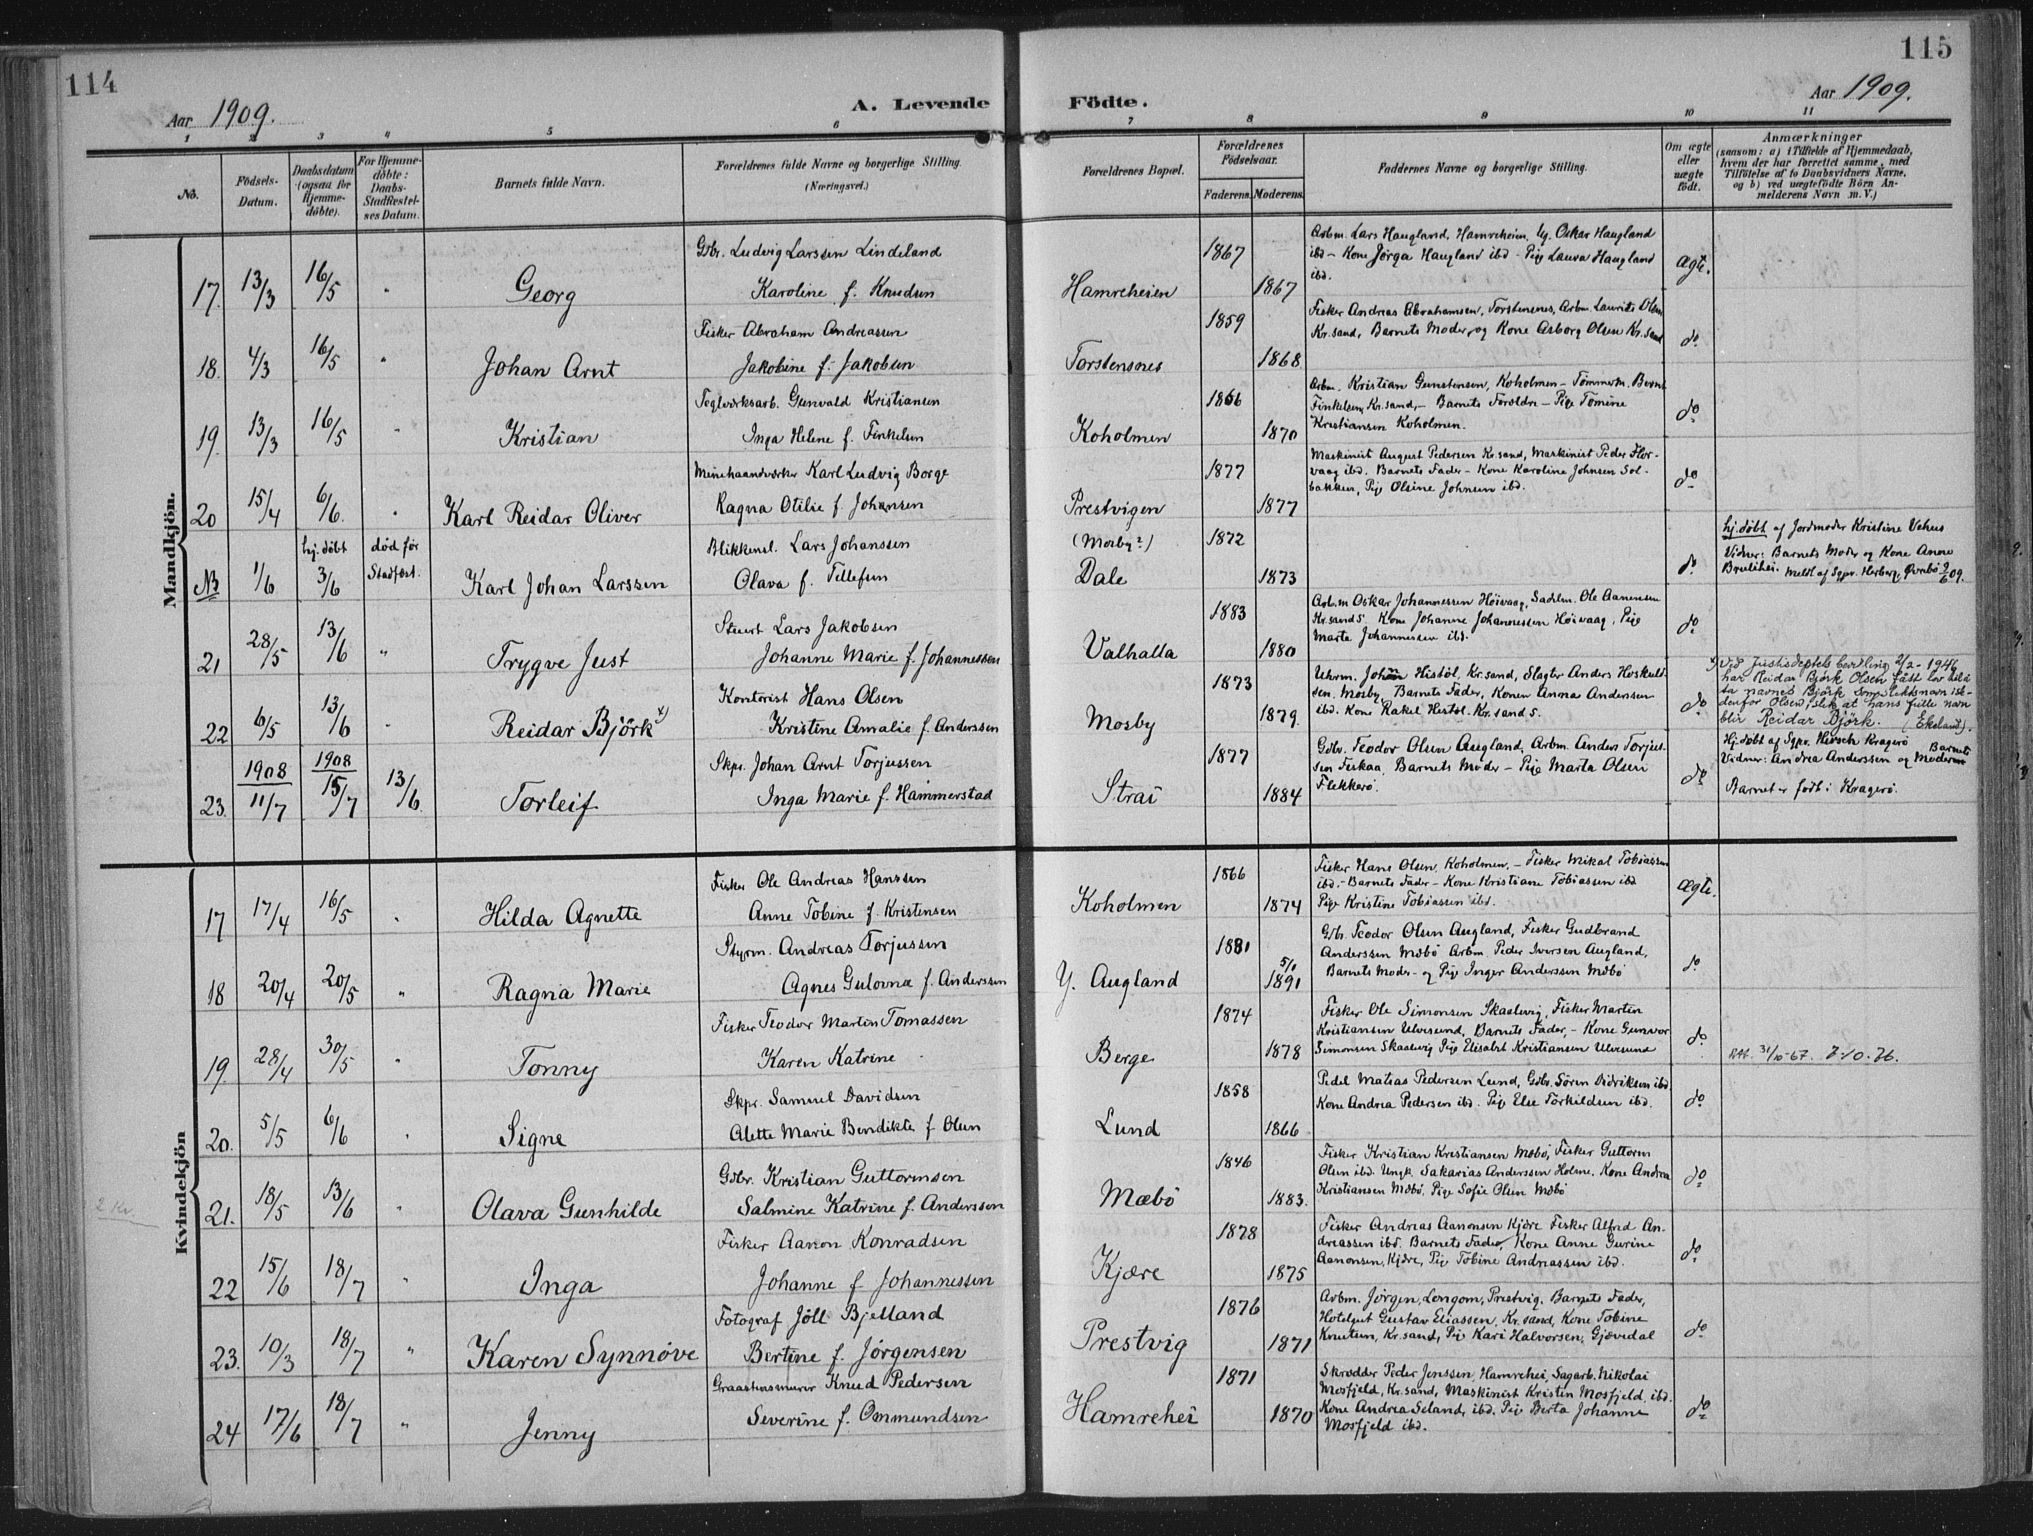 114
Aar 1909.
A. Levende
1 2 3 4 5 6
No.
Födsels-Datum.
Daabsdatum (ogsaa for Hjemme-döbte).
For Hjemme-döbte: Daabs-Stadfæstel-ses Datum.
Barnets fulde Navn.
Forældrenes fulde Navne og borgerlige Stilling.
(Næringsvei.)
Mandkjön.
Gbr. Ludvig Larssen Lindeland
17. 13/3 16/5 " Georg Karoline f. Knudsen
Fisker Abraham Andreassen
18. 4/3 16/5 " Johan Arnt Jakobine f. Jakobsen
Teglværksarb. Gunvald Kristiansen
19. 13/3 16/5 " Kristian Inga Helene f. Finkelsen
Minehaandværker Karl Ludvig Borge
20 15/4 6/6. " Karl Reidar Oliver Ragna Otilie f. Johansen
hj. döbt död før Blikkensl. Lars Johanssen
NB 1/6 3/6 Stadfæst. Karl Johan Larssen Olava f. Tellefsen
Stuert Lars Jakobsen
21 28/5 13/6 " Trygve Just Johanne Marie f. Johannessen
Kontorist Hans Olsen
22 6/5 13/6 Reidar Björk x) Kristine Amalie f. Anderssen
1908 1908 Skpr. Johan Arnt Torjussen
23. 11/7 15/7 13/6. Torleif Inga Marie f. Hammerstad
Kvindekjön
Fisker Ole Andreas Hanssen
17 17/4 16/5 " Hilda Agnette Anne Tobine f. Kristensen
Styrm. Andreas Torjussen
18 20/4 20/5 " Ragna Marie Agnes Gulovna f. Anderssen
Fisker Teodor Martin Tomassen
19. 28/4 30/5 " Tonny Karen Katrine
Skpr. Samuel Davidsen
20. 5/5 6/6 " Signe Alette Marie Bendikte f. Olsen
Gbr. Kristian Guttormsen
2 Kr. 21. 18/5 13/6 " Olava Gunhilde Salmine Katrine f. Anderssen
Fisker Aanon Konradsen
22 15/6 18/7 " Inga Johanne f. Johannessen
Fotograf Jöll Bjelland
23. 10/3 18/7 " Karen Synnöve Bertine f. Jörgensen
Graastensmurer Knud Pedersen
24 17/6 18/7 " Jenny Severine f. Ommundsen
115
Aar 1909.
Födte.
7 8 9 10 11
Forældrenes Bopæl.
Forældrenes Födselsaar.
Faderens. Moderens.
Faddernes Navne og borgerlige Stilling.
Om ægte eller uægte födt.
Anmærkninger
(saasom: a) i Tilfælde af Hjemmedaab,
hvem der har forrettet samme, med
Tilföielse af to Daabsvidners Navne,
og b) ved uægtefödte Börn An-
melderens Navn m. V.)
1867 Arbm. Lars Haugland, Hamreheien. Ug. Oskar Haugland
ibd – Kone Jörga Haugland ibd – Pige Laura Haugland
Hamreheien 1867 ibd. ægte.
1859 Fisker Andreas Abrahamsen, Torstensnes, Arbm. Laurits Olsen
Kr.sand, Barnets Moder, og Kone Asborg Olsen Kr.sand
Torstensnes 1868 do
1866 Arbm. Kristian Gunstensen, Koholmen – Tömmerm. Bernt
Finkelsen, Kr.sand, – Barnets Forældre – Pige Tomine
Koholmen 1870 Kristiansen Koholmen. do
1877 Maskinist August Pedersen Kr.sand, Maskinist Peder Flor-
vaag ibd. Barnets Fader – Kone Karoline Johnsen Sol-
Prestvigen 1877 bakken, Pige Olsine Johnsen ibd. do
(Mosby?) 1872
Dale 1873 do
hj. döbt af Jordmoder Kristine Vehus
Vidner: Barnets Moder og Kone Anne
Bruliheii. Meldt af Sgpr. Herberg, Øvrebö 9/6 09.
1883 Arb.m Oskar Johannessen Höivaag, Sadelm. Ole Aanensen
Kr.sand S. Kone Johanne Johannessen Höivaag, Pige
Valhalla 1880 Marta Johannessen ibd. do
1873 Uhrm. Johan Histöl, Kr.sand, Slagter Anders Hoskuld-
sen, Mosby, Barnets Fader, Konen Anna Anderssen
Mosby 1879. ibd. Kone Rakel Hestöl. Kr.sand S. do
x) Ved Justisdeptets bevilling 2/2 - 1946
har Reidar Björk Olsen fått lov til å
ta navnet Björk som slektsnavn iste-
denfor Olsen, slik at hans fulle navn
blir Reidar Björk. (Ekeland).
1877 Gbr. Teodor Olsen Augland, Arbm. Anders Torjus-
sen Fiskaa, Barnets Moder – Pige Marta Olsen
Strai 1884 Flekkerö. do
Hj. döbt af Sgpr. Hirsch Kragerö
Vidner: Andrea Anderssen og Barnets Moderen
Barnet er födt i Kragerö.
1866 Fisker Hans Olsen, Koholmen, – Fisker Mikal Tobiassen
ibd. – Barnets Fader – Kone Kristiane Tobiassen ibd
Koholmen 1874 Pige Kristine Tobiassen ibd. Ægte.
1881 Gbr. Teodor Olsen Augland, Fisker Gudbrand
Anderssen Mæbö Arbm Peder Iversen Augland,
Y. Augland 5/1 1891 Barnets Moder – og Pige Inger Anderssen Mæbö do
1874 Fisker Ole Simonsen Skaalevig, Fisker Martin
Kristiansen Ulvesund, Barnets Fader, – Kone Gunvor
Berge 1878 Simonsen Skaalevig Pige Elisabet Kristiansen Ulvesund do
31/10-67. 7-10-76.
1858 Pedel Matias Pedersen Lund, Gbr. Sören Didriksen ibd
Kone Andrea Pedersen ibd. Pige Else Torkildsen ibd. do
Lund 1866
1846 Fisker Kristian Kristiansen Mæbö, Fisker Guttorm
Olsen ibd. Ungk. Sakarias Anderssen Holme. Kone Andrea
Mæbö 1883. Kristiansen Mæbö, Pige Sofie Olsen Mæbö do
1878 Fisker Andreas Aanonsen Kjære Fisker Alfred An-
dreassen ibd. Barnets Fader, Kone Anne Gurine
Kjære 1875 Aanonsen, Kjære, Pige Tobine Andreassen ibd. do
1876 Arbm. Jörgen Longom, Prestvig, Barnets Fader,
Hotelgut Gustav Eliassen, Kr.sand, Kone Tobine
Prestvig 1871 Knutsen, Kr.sand, Pige Kari Halvorsen, Gjøvedal do
1871 Skrædder Peder Jenssen, Hamrehei, Sagarb. Nikolai
Mosfjeld, Kr.sand, Maskinist Kristen Mosfjeld ibd.
Hamrehei 1870 Kone Andrea Seland, ibd. Pige Berta Johanne do
Mosfjeld ibd.